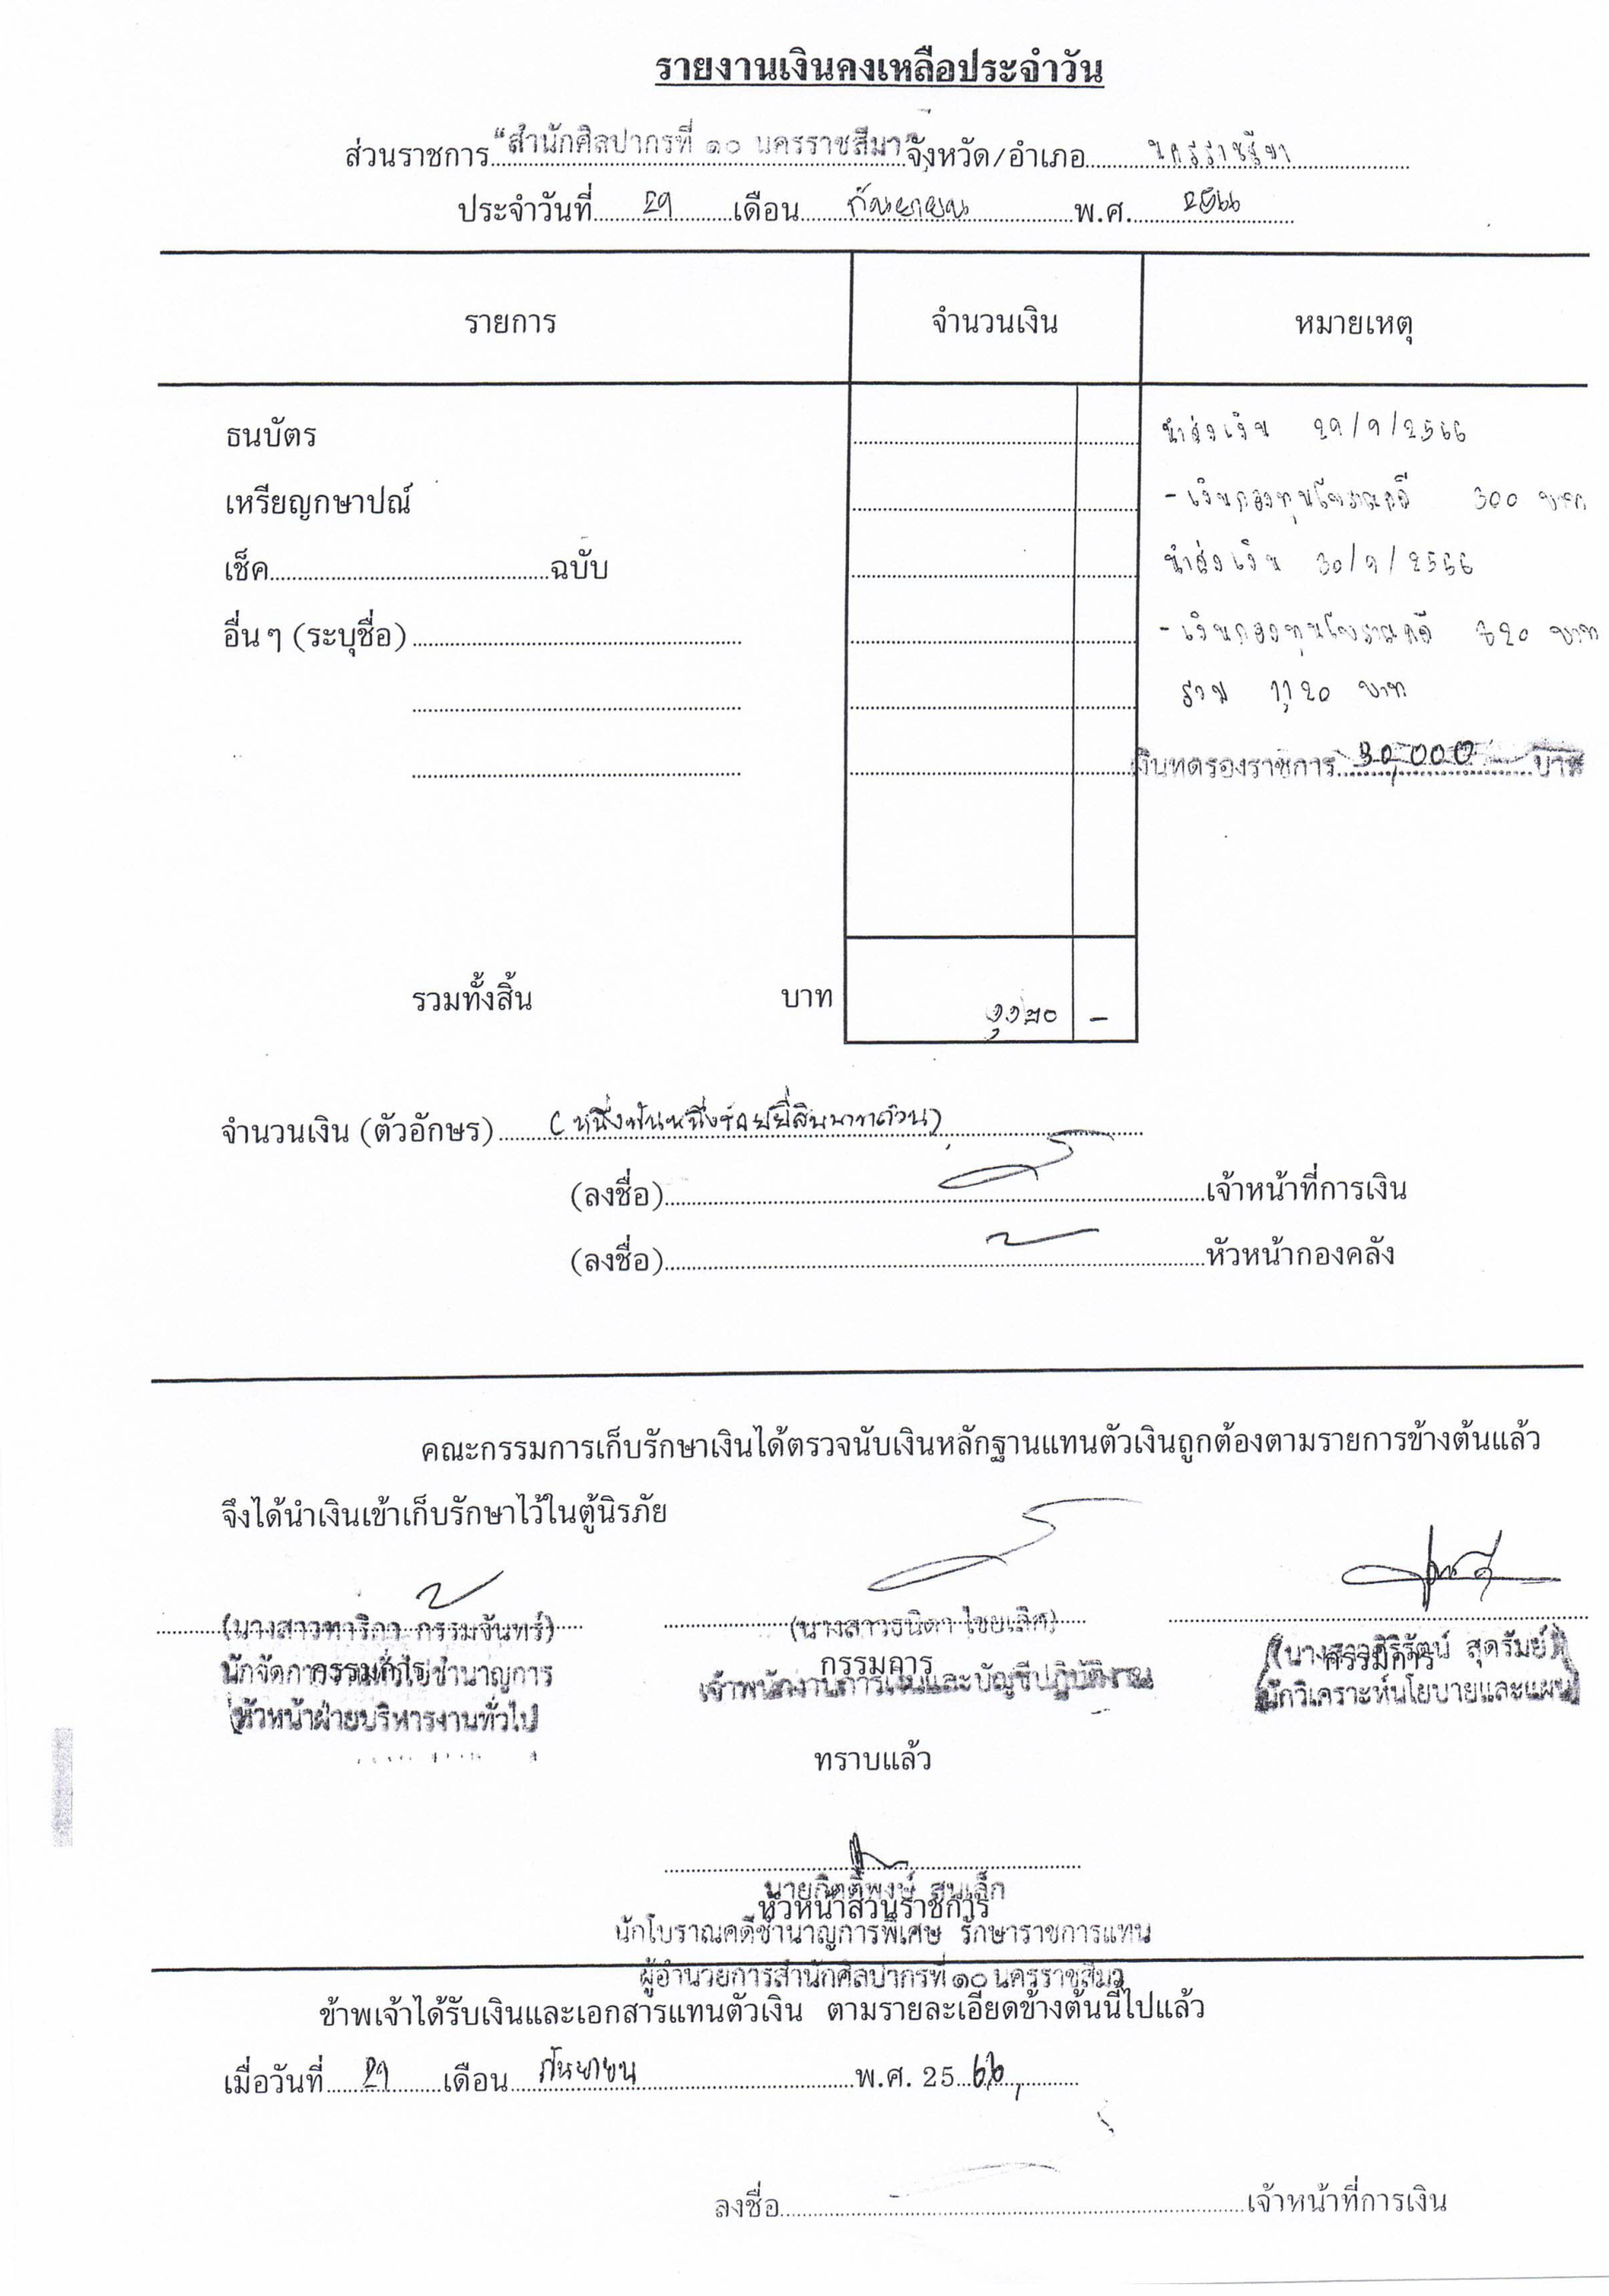 รายงานเงินคงเหลือประจำวัน
ส่วนราชการ "สำนักศิลปากรที่ ๑๐ นครราชสีมา" จังหวัด/อำเภอ นครราชสีมา
ประจำวันที่ 29 เดือน กันยายน พ.ศ. 2566
รายการ จำนวนเงิน หมายเหตุ
ธนบัตร นำส่งเงิน 29/9/2566
เหรียญกษาปณ์ - เงินกองทุนโบราณคดี 300 บาท
เช็ค ฉบับ นำส่งเงิน 30/9/2566
อื่น ๆ (ระบุชื่อ) - เงินกองทุนโบราณคดี 820 บาท
รวม 1,120 บาท
เงินทดรองราชการ 30,000 - บาท
รวมทั้งสิ้น บาท 1,120 -
จำนวนเงิน (ตัวอักษร) (หนึ่งพันหนึ่งร้อยยี่สิบบาทถ้วน)
(ลงชื่อ) เจ้าหน้าที่การเงิน
(ลงชื่อ) หัวหน้ากองคลัง
คณะกรรมการเก็บรักษาเงินได้ตรวจนับเงินหลักฐานแทนตัวเงินถูกต้องตามรายการข้างต้นแล้ว
จึงได้นำเงินเข้าเก็บรักษาไว้ในตู้นิรภัย
(นางสาวทาริกา กรรมจันทร์) (นางสาวธนิดา ไชยเลิศ) (นางสาวศิริรัตน์ สุดรัมย์)
กรรมการ กรรมการ กรรมการ
นักจัดการงานทั่วไปชำนาญการ เจ้าพนักงานการเงินและบัญชีปฏิบัติงาน นักวิเคราะห์นโยบายและแผน
หัวหน้าฝ่ายบริหารงานทั่วไป
ทราบแล้ว
นายกิตติพงษ์ สนเล็ก
หัวหน้าส่วนราชการ
นักโบราณคดีชำนาญการพิเศษ รักษาราชการแทน
ผู้อำนวยการสำนักศิลปากรที่ ๑๐ นครราชสีมา
ข้าพเจ้าได้รับเงินและเอกสารแทนตัวเงิน ตามรายละเอียดข้างต้นนี้ไปแล้ว
เมื่อวันที่ 29 เดือน กันยายน พ.ศ. 2566
ลงชื่อ เจ้าหน้าที่การเงิน